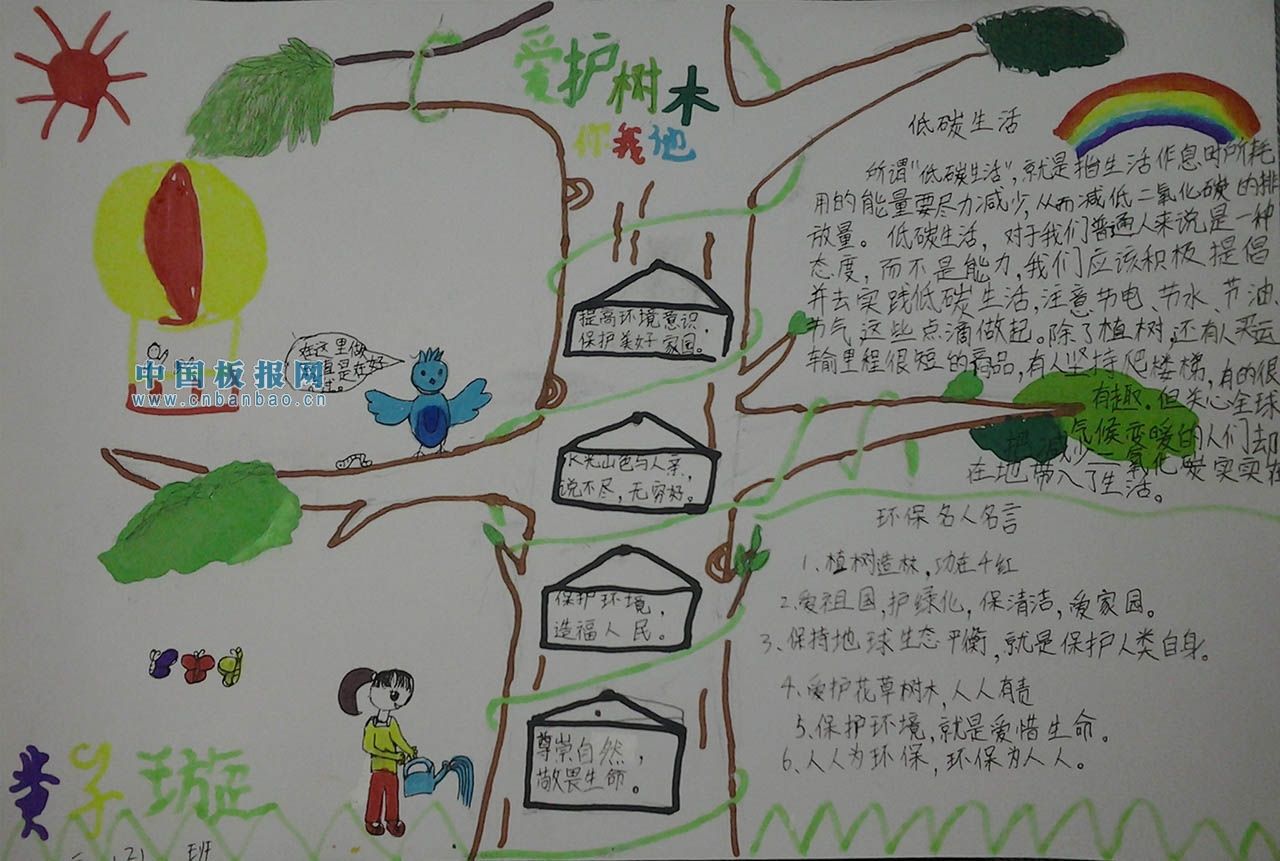 爱护树木
你我他
低碳生活
所谓"低碳生活",就是指生活作息时所耗
用的能量要尽力减少,从而减低二氧化碳的排
放量。低碳生活,对于我们普通人来说是一种
态度,而不是能力,我们应该积极提倡
并去实践低碳生活,注意节电、节水、节油、
节气,这些点滴做起。除了植树,还有人买运
输里程很短的商品,有人坚持爬楼梯,有的很
有趣,但关心全球
气候变暖的人们却
把减少二氧化碳实实在
在地带入了生活。
提高环境意识,
保护美好家园。
在这里做
中国板报网
www.cnbanbao.cn
水光山色与人亲,
说不尽,无穷好。
环保名人名言
1、植树造林,功在千红
2、爱祖国,护绿化,保清洁,爱家园。
3、保持地球生态平衡,就是保护人类自身。
4、爱护花草树木,人人有责
5、保护环境,就是爱惜生命。
6、人人为环保,环保为人人。
保护环境,
造福人民。
尊崇自然,
敬畏生命。
黄子璇
班